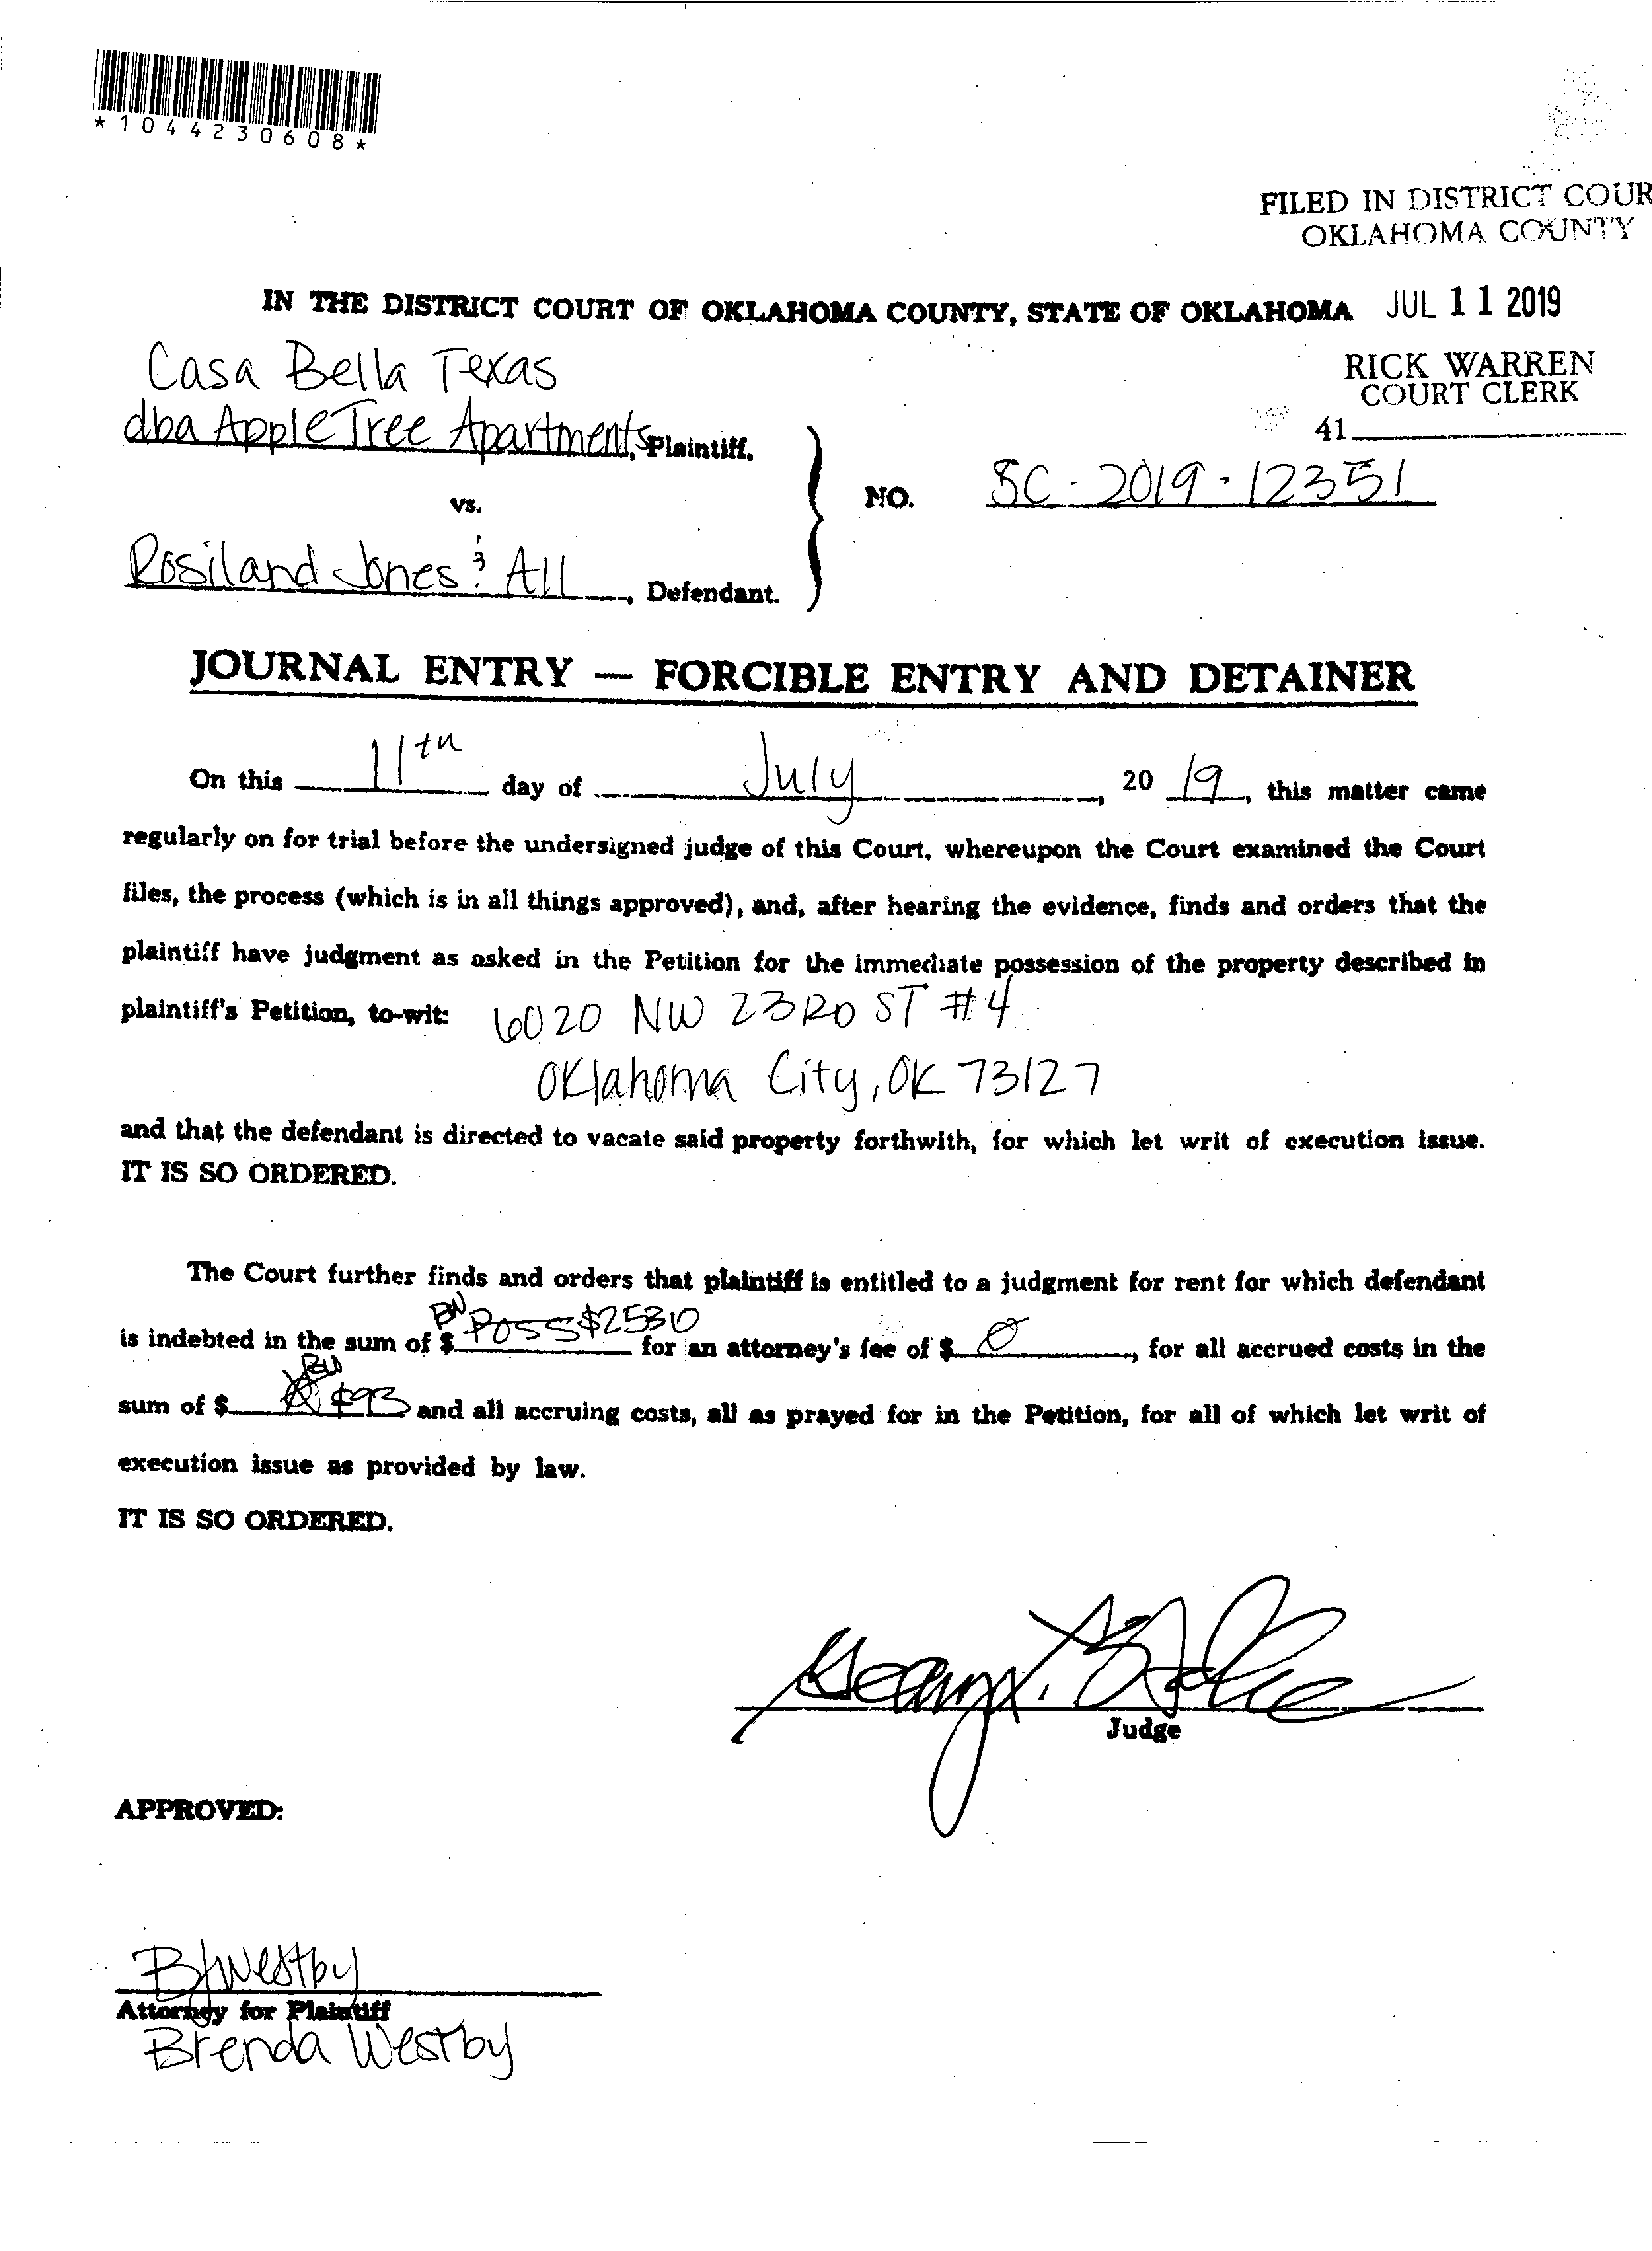 *1044230608*
FILED IN DISTRICT COUR
OKLAHOMA COUNTY
IN THE DISTRICT COURT OF OKLAHOMA COUNTY, STATE OF OKLAHOMA JUL 11 2019
RICK WARREN
COURT CLERK
41
Casa Bella Texas
dba AppleTree Apartments, Plaintiff,
vs.
NO. SC-2019-12351
Rosiland Jones & All, Defendant.
JOURNAL ENTRY — FORCIBLE ENTRY AND DETAINER
On this 11th day of July, 2019, this matter came
regularly on for trial before the undersigned judge of this Court, whereupon the Court examined the Court
files, the process (which is in all things approved), and, after hearing the evidence, finds and orders that the
plaintiff have judgment as asked in the Petition for the immediate possession of the property described in
plaintiff's Petition, to-wit: 6020 NW 23RD ST #4
Oklahoma City, OK 73127
and that the defendant is directed to vacate said property forthwith, for which let writ of execution issue.
IT IS SO ORDERED.
The Court further finds and orders that plaintiff is entitled to a judgment for rent for which defendant
BW
is indebted in the sum of $ Poss $2530 for an attorney's fee of $ 0, for all accrued costs in the
BW
sum of $ $93 and all accruing costs, all as prayed for in the Petition, for all of which let writ of
execution issue as provided by law.
IT IS SO ORDERED.
Judge
APPROVED:
BWestby
Attorney for Plaintiff
Brenda Westby